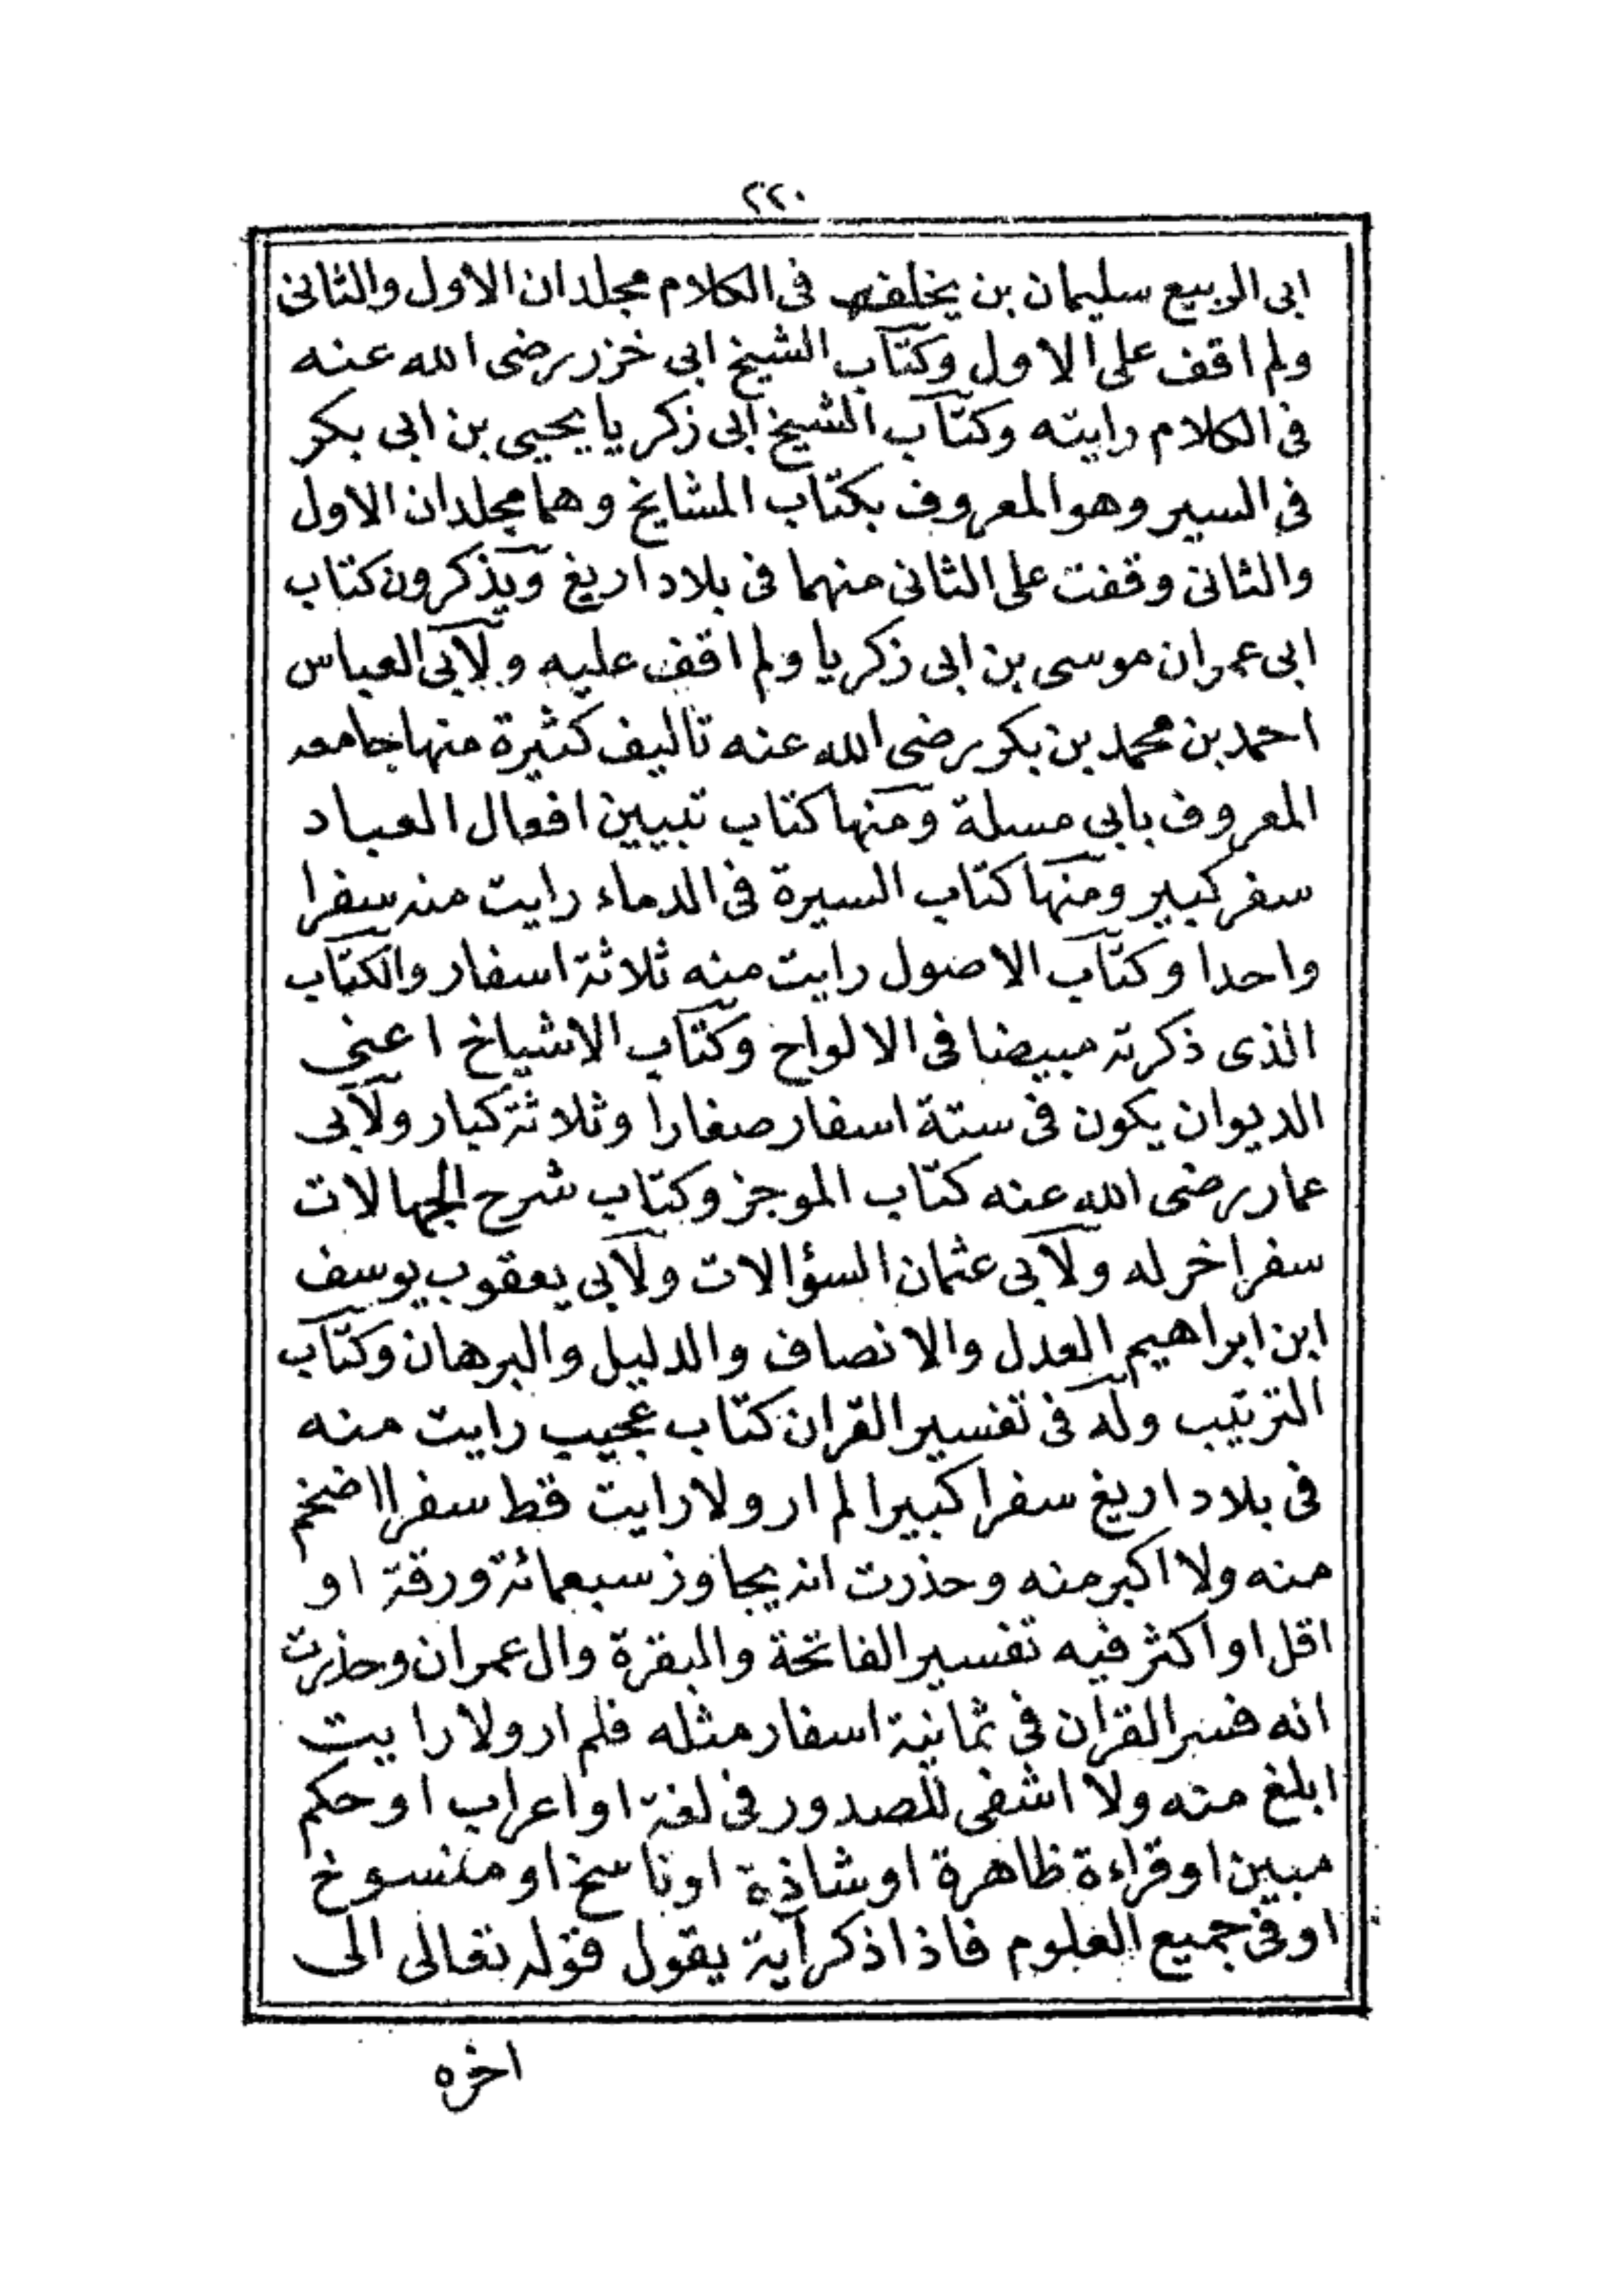 ٢٢٠
ابى الربيع سليمان بن يخلف فى الكلام مجلدان الاول والثانى
ولم اقف على الاول وكتاب الشيخ ابى خزر رضى الله عنه
فى الكلام رايته وكتاب الشيخ ابى زكريا يحيى بن ابى بكر
فى السير وهو المعروف بكتاب المشايخ وهما مجلدان الاول
والثانى وقفت على الثانى منهما فى بلاد اريغ ويذكرون كتاب
ابى عمران موسى بن ابى زكريا ولم اقف عليه ولابى العباس
احمد بن محمد بن بكر رضى الله عنه تاليف كثيرة منها جامعه
المعروف بابى مسلة ومنها كتاب تبيين افعال العباد
سفر كبير ومنها كتاب السيرة فى الدماء رايت منه سفرا
واحدا وكتاب الاصول رايت منه ثلاثة اسفار والكتاب
الذى ذكرته مبيضا فى الالواح وكتاب الاشياخ اعنى
الديوان يكون فى ستة اسفار صغارا وثلاثة كبار ولابى
عمار رضى الله عنه كتاب الموجز وكتاب شرح الجهالات
سفر اخر له ولابى عثمان السؤالات ولابى يعقوب يوسف
ابن ابراهيم العدل والانصاف والدليل والبرهان وكتاب
الترتيب وله فى تفسير القران كتاب عجيب رايت منه
فى بلاد اريغ سفرا كبيرا لم ار ولا رايت قط سفرا اضخم
منه ولا اكبر منه وحذرت انه يجاوز سبعمائة ورقة او
اقل او اكثر فيه تفسير الفاتحة والبقرة وال عمران وحذرت
انه فسر القران فى ثمانية اسفار مثله فلم ار ولا رايت
ابلغ منه ولا اشفى للصدور فى لغة او اعراب او حكم
مبين او قراءة ظاهرة او شاذة او ناسخ او منسوخ
او فى جميع العلوم فاذا ذكر آية يقول قوله تعالى الى
اخره